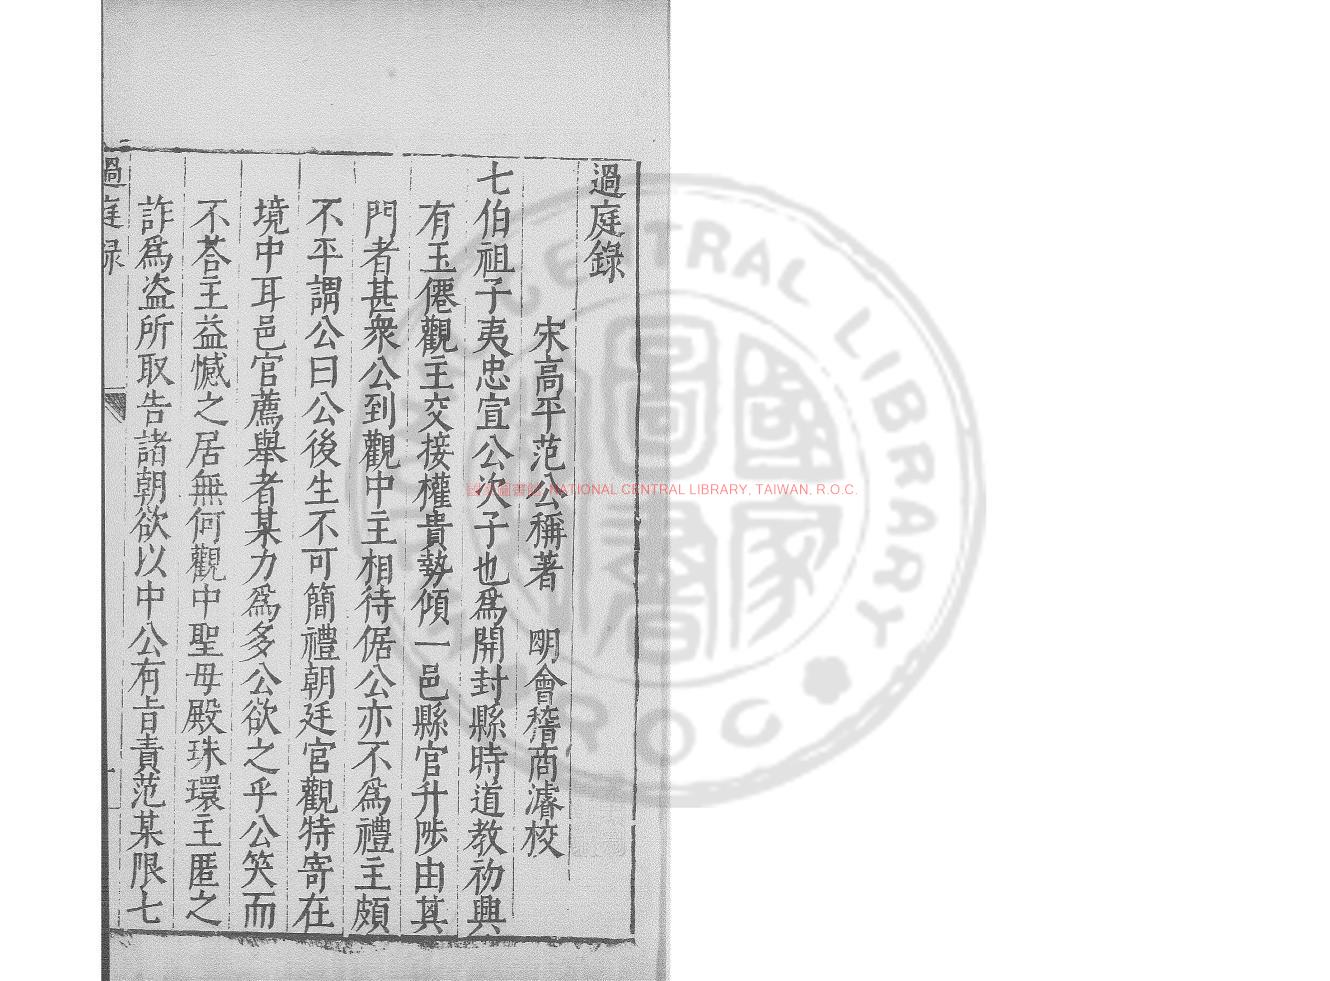 過庭錄
宋高平范公稱著　明會稽商濬校
七伯祖子夷忠宣公次子也爲開封縣時道教初興
有玉僊觀主交接權貴勢傾一邑縣官升陟由其
門者甚衆公到觀中主相待倨公亦不爲禮主頗
不平謂公曰公後生不可簡禮朝廷宮觀特寄在
境中耳邑官薦舉者某力爲多公欲之乎公笑而
不荅主益憾之居無何觀中聖母殿珠環主匿之
詐爲盗所取告諸朝欲以中公有旨責范某限七
過庭録
一
國家圖書館, NATIONAL CENTRAL LIBRARY, TAIWAN, R.O.C.
CENTRAL LIBRARY
R.O.C.